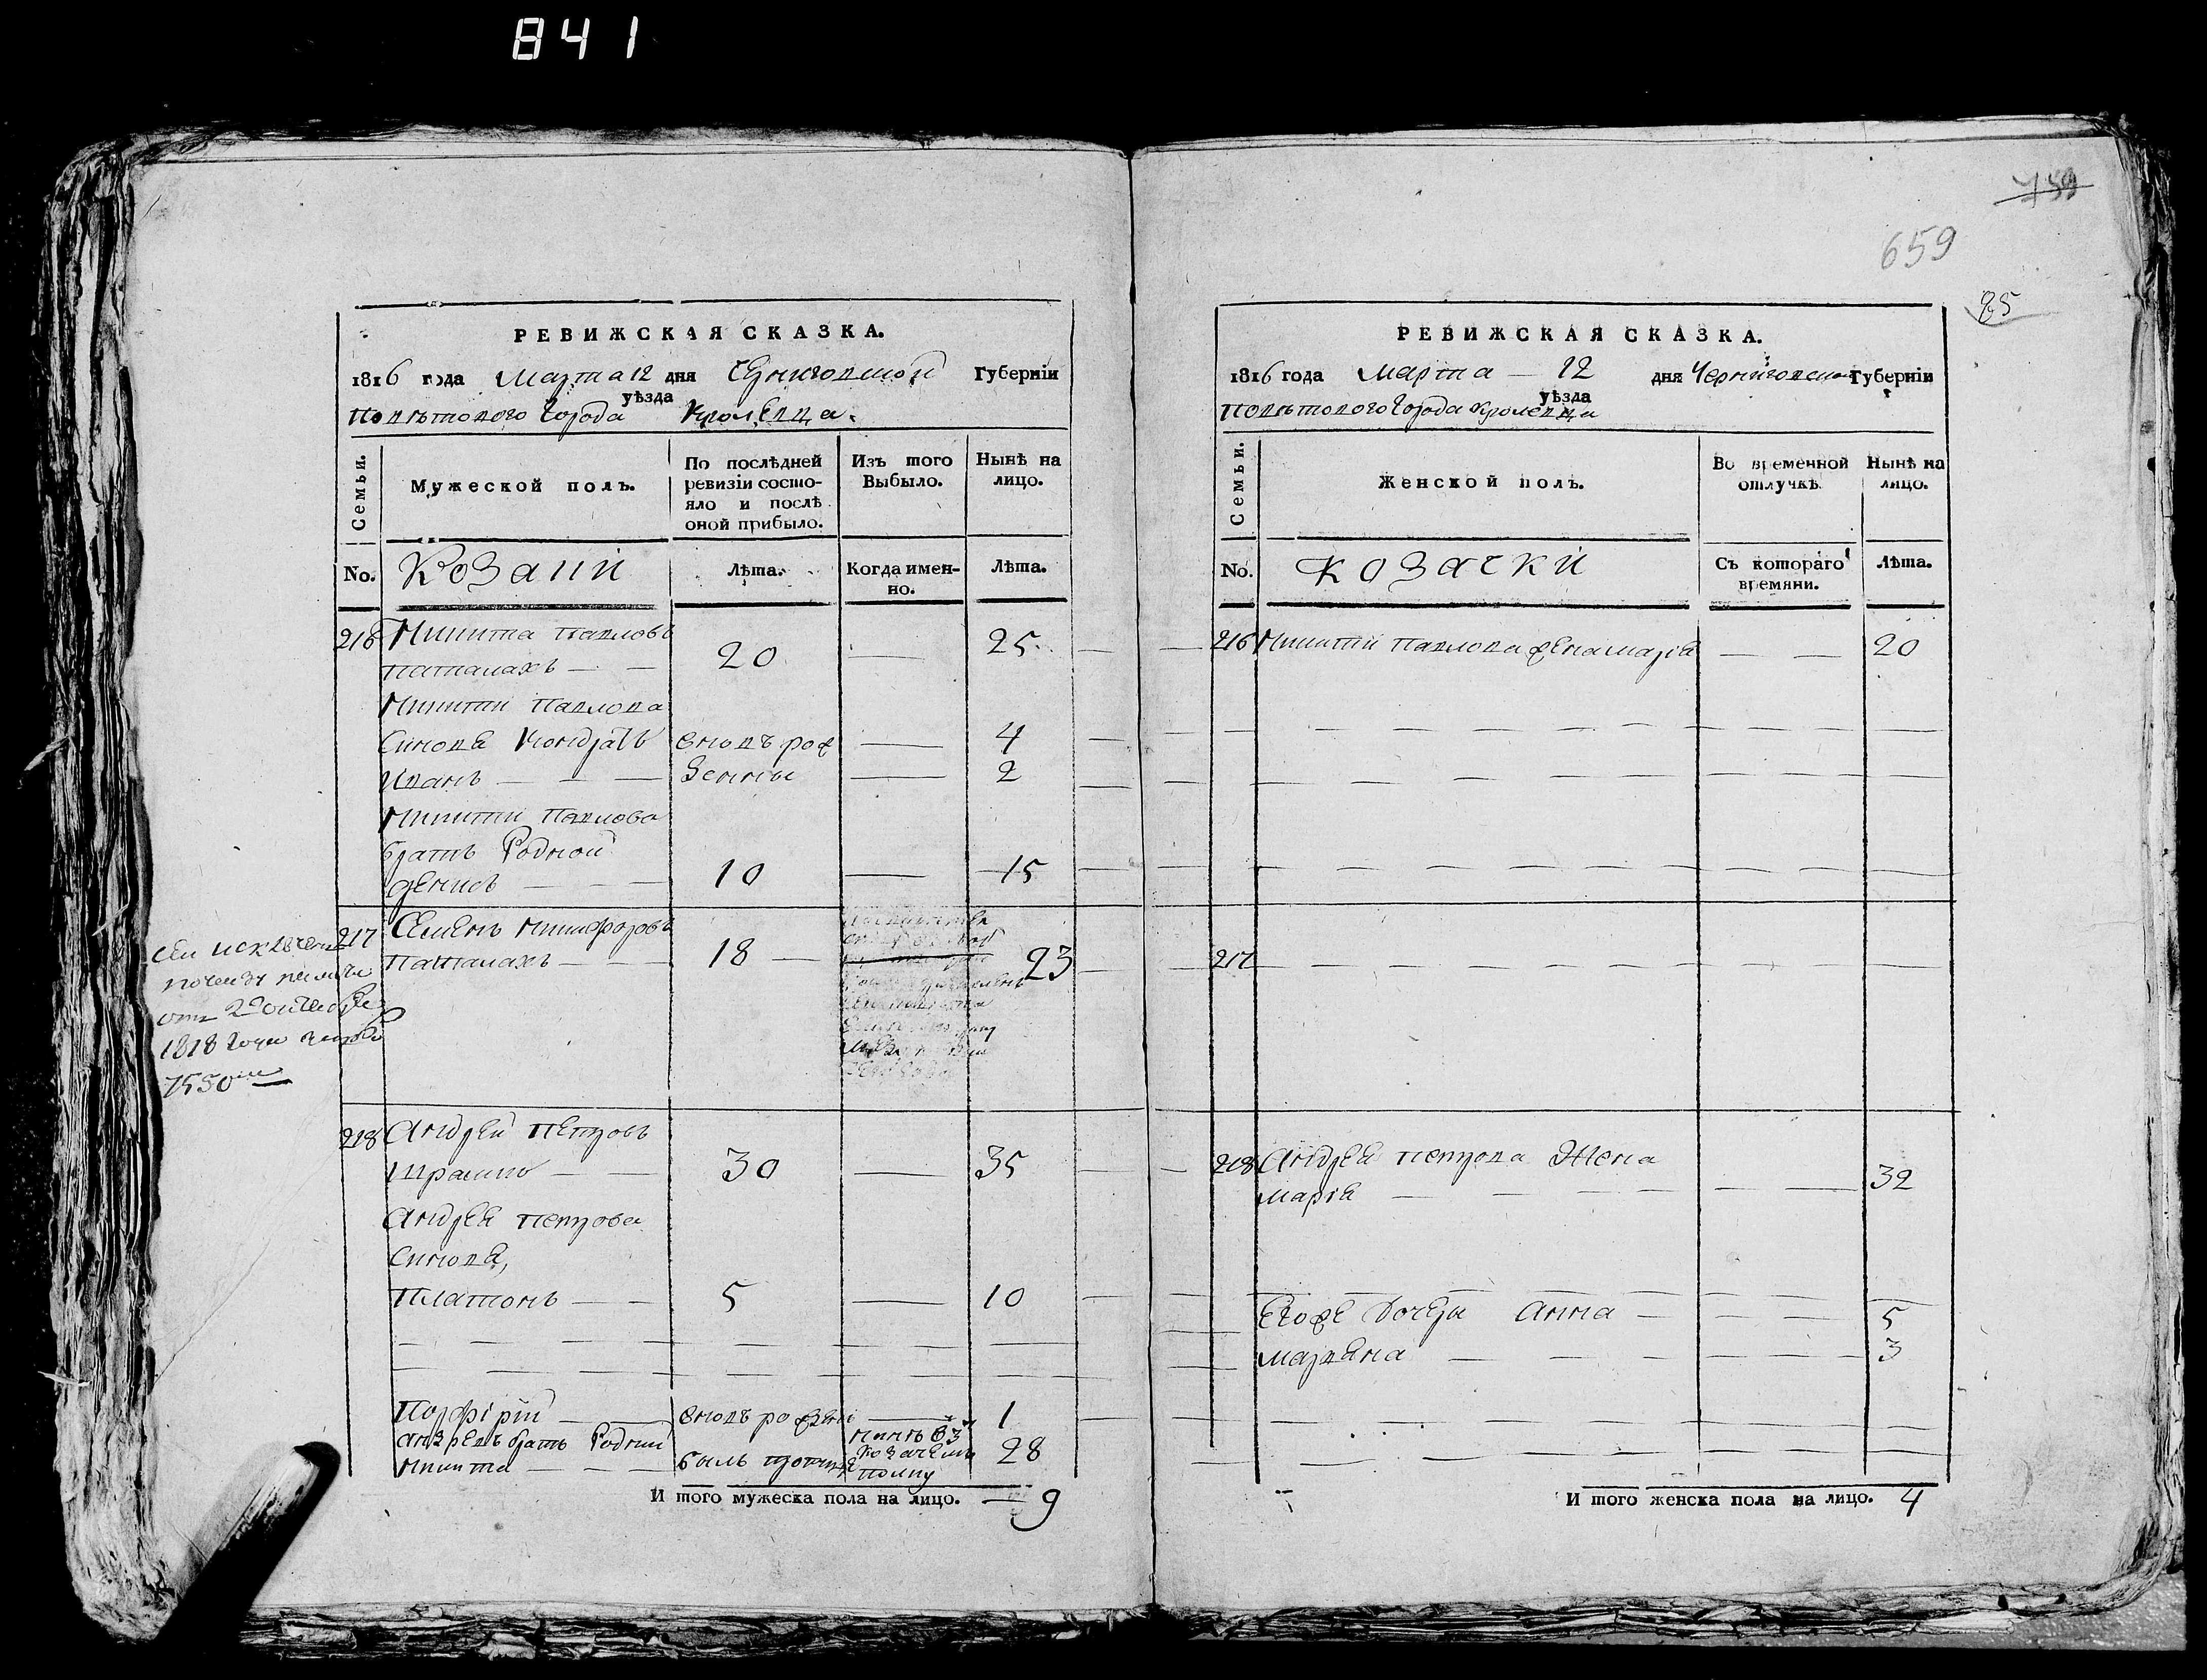 841
759
659
85
РЕВИЖСКАЯ СКАЗКА.
1816 года Марта 12 дня Черниговской Губерніи
уѣзда
Повѣтового города Кролевца.
Семьи.
Мужеской полъ.
По послѣдней ревизіи состо-
яло и послѣ
оной прибыло.
Изъ того
Выбыло.
Нынѣ на
лицо.
No.
Козаки
Лѣта.
Когда имен-
но.
Лѣта.
216 Никита Павловъ
Паталахъ — — 20 — 25
Никиты Павлова
Синовя Кондратъ вновь рож 4
Иванъ — — — денны — 2
Никиты Павлова
братъ Родной
Денисъ — — — 10 — 15
217 Семенъ Никифоровъ
Паталахъ — — 18 — 23
Сей исключенъ
отъ 2 октября
1818 года
7550
218 Андрей Петровъ
30 — 35
Андрея Петрова
Синовя,
Платонъ — — 5 — 10
Порфірій — вновь рожденъ — 1
братъ Родний
Никита — — — былъ
козачемъ
полку
28
И того мужеска пола на лицо. — 9
РЕВИЖСКАЯ СКАЗКА.
1816 года Марта — 12 дня Черниговской Губерніи
уѣзда
Повѣтового города Кролевца
Семьи.
Женской полъ.
Во временной
отлучкѣ
Нынѣ на
лицо.
No.
козачки
Съ котораго
времяни.
Лѣта.
216 Никиты Павлова жена Марія — — 20
217
218 Андрея Петрова Жена
Марія — — — — — — 32
Егоже дочери Анна — — — 5
Марвяна — — — — — 3
И того женска пола на лицо. 4